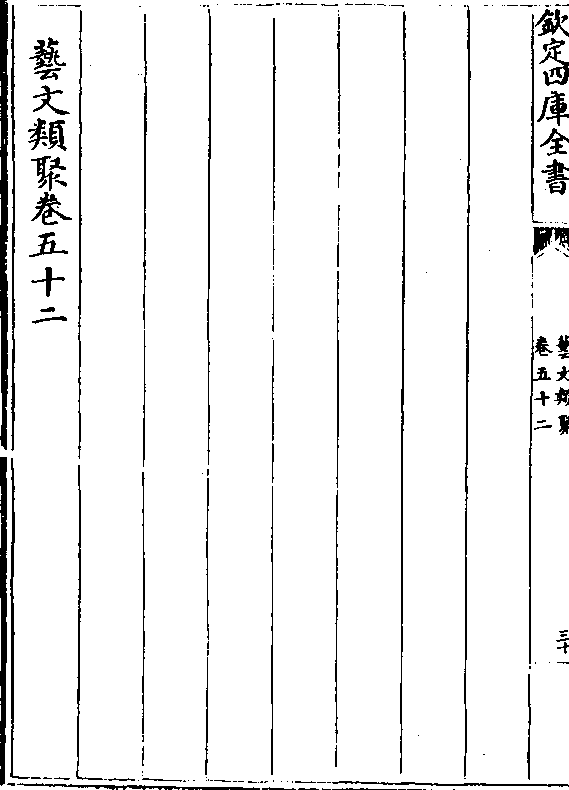 欽定四庫全書
藝文類聚
卷五十二
三十
藝文類聚卷五十二